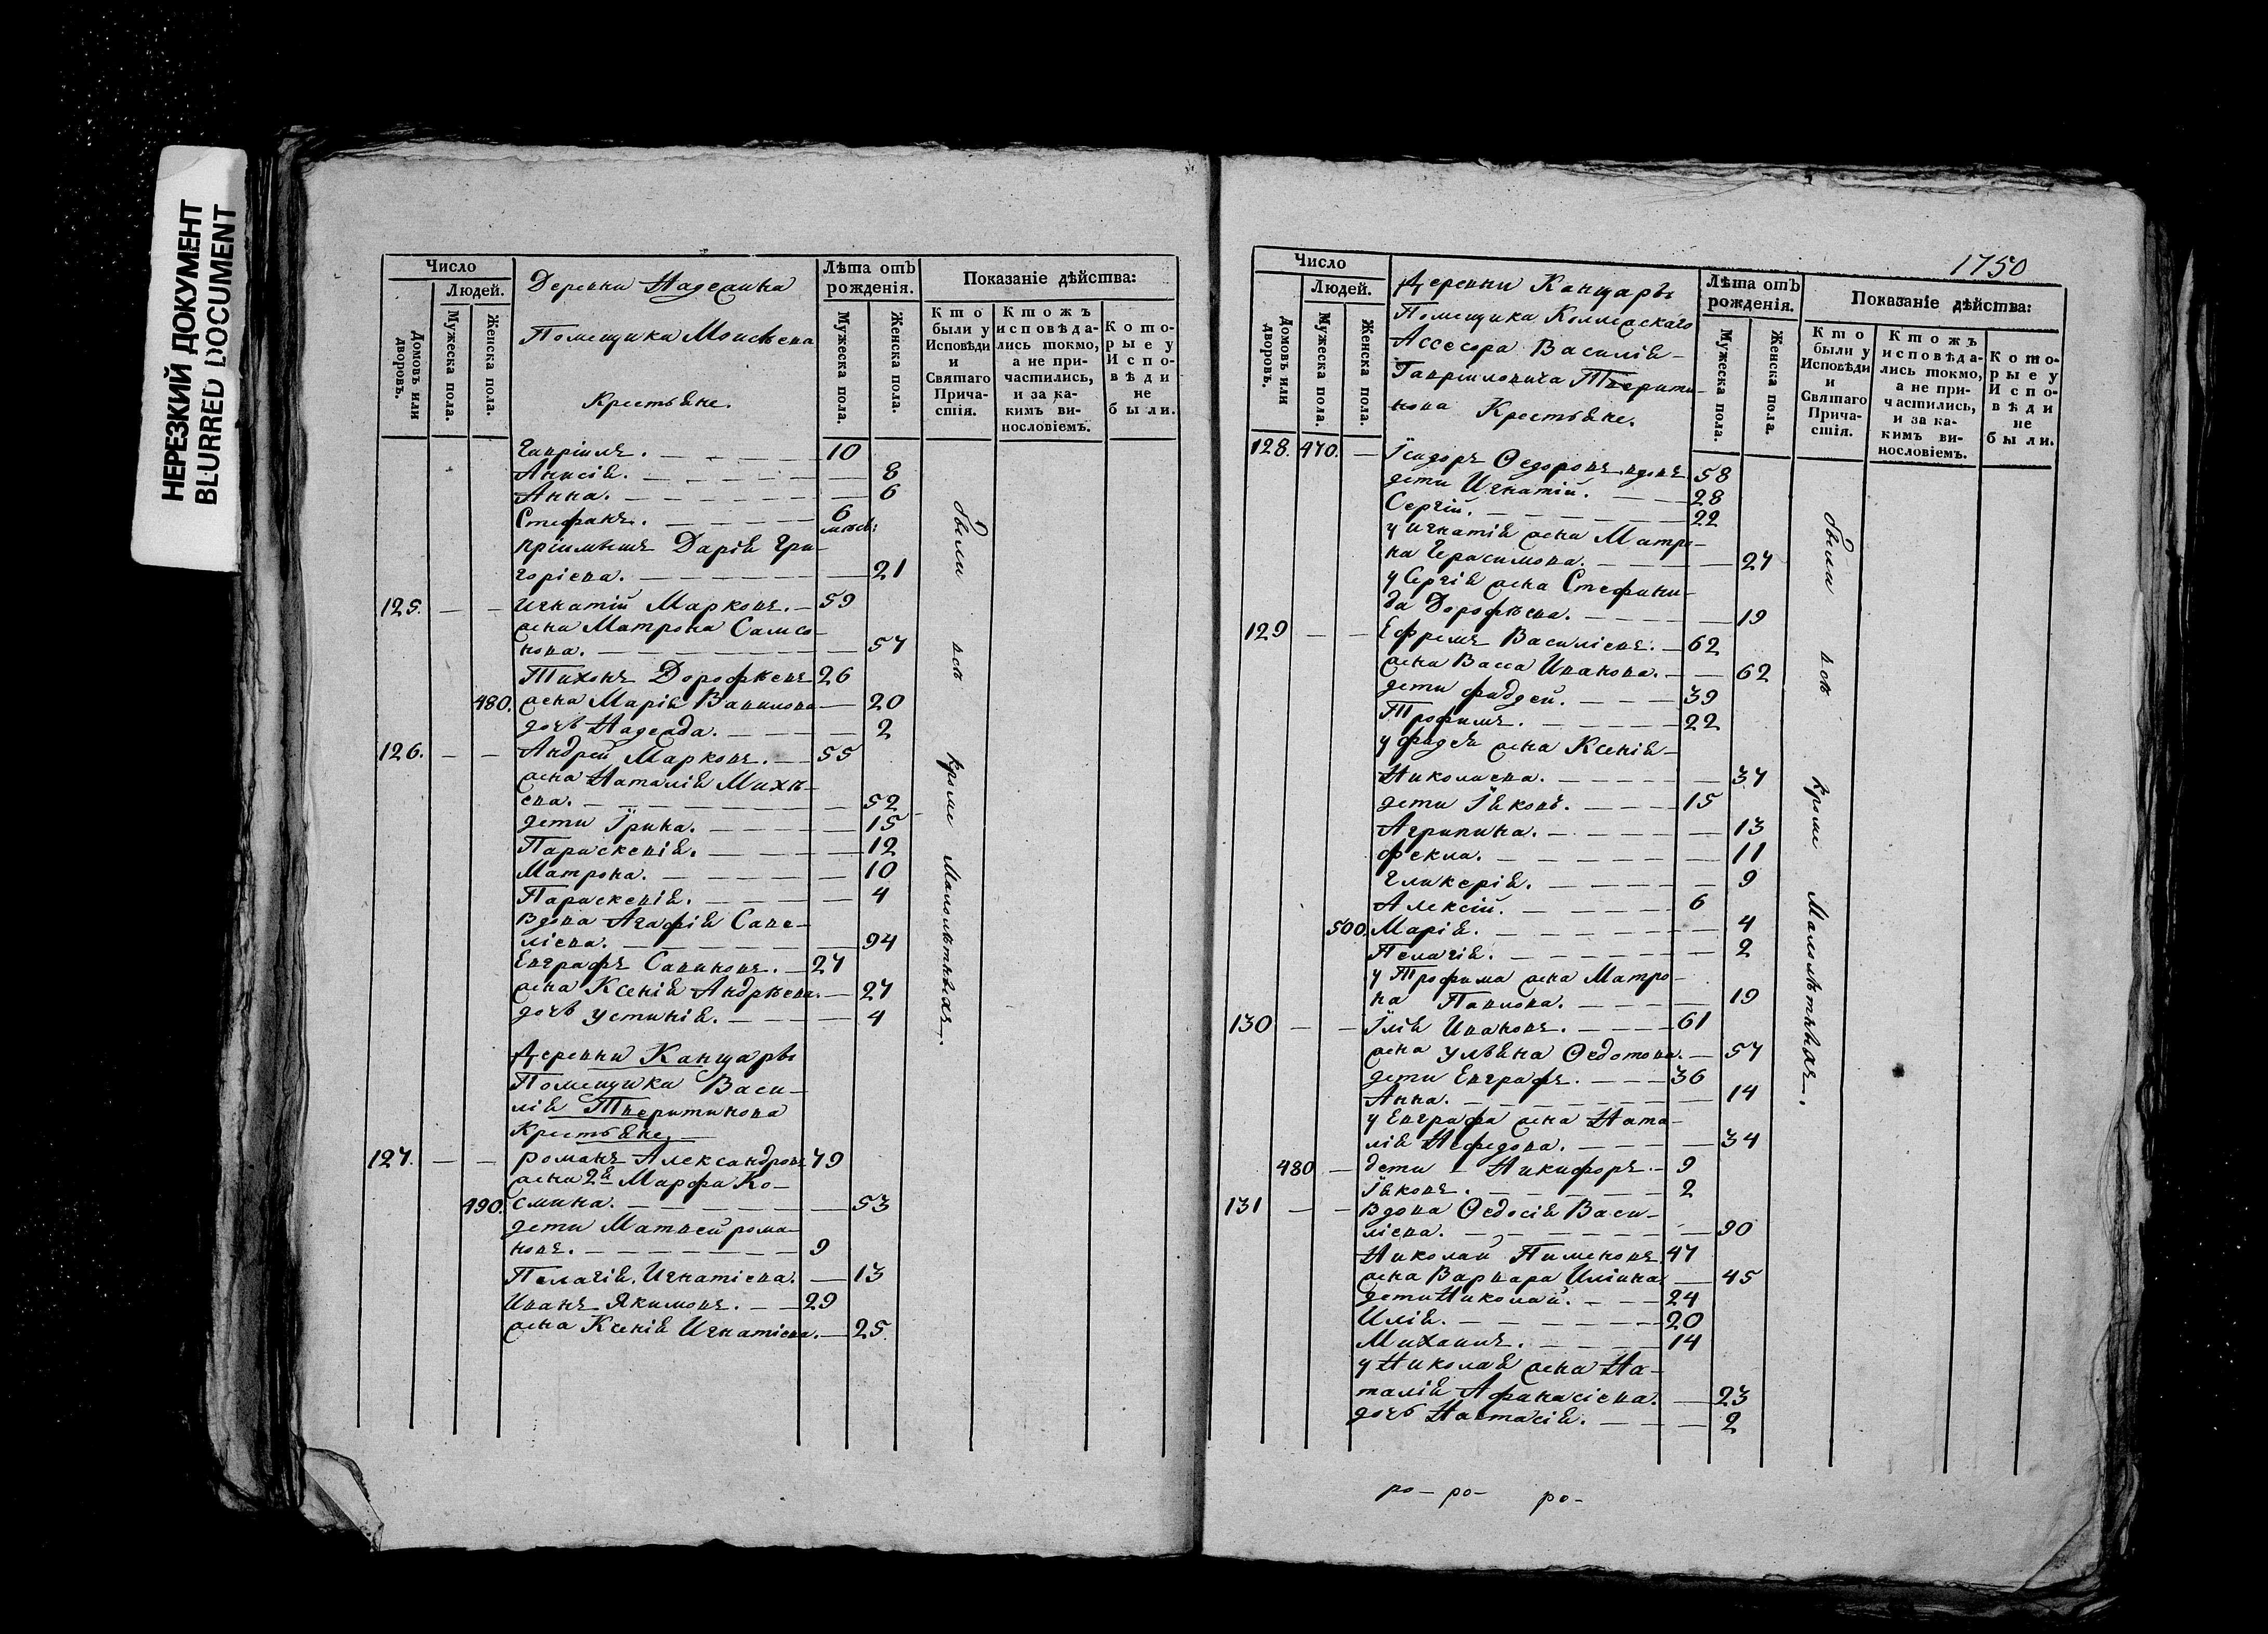 НЕРЕЗКИЙ ДОКУМЕНТ
BLURRED DOCUMENT
Число
Людей.
Домовъ или дворовъ.
Мужеска пола.
Женска пола.
Деревни Надежина
Помещика Моисѣева
Крестьяне.
Лѣта отъ рожденія.
Мужеска пола.
Женска пола.
Показаніе дѣйства:
Кто были у Исповѣди и Святаго Причастія.
Ктожъ исповѣдались токмо, а не причастились, и за какимъ винословіемъ.
Которые у Исповѣди не были.
Гавріилъ. 10
Анисія. 8
Анна. 6
Стефанъ. 6 мѣсѣ:
пріимышъ Дарія Гри-
горіева. 21
125. Игнатій Марковъ. 59
жена Матрона Самсо-
нова. 57
Тихонъ Дорофѣевъ 26
480. жена Марія Вавилова 20
дочь Надежда. 2
126. Андрей Марковъ. 55
жена Наталія Михѣ-
ева. 52
дети Ірина. 15
Параскевія. 12
Матрона. 10
Параскевія. 4
Вдова Агафія Саве-
ліева. 94
Евграфъ Савиновъ. 27
жена Ксенія Андрѣева. 27
дочь Устинія. 4
Деревни Канщары
Помещика Васи-
лія Тверитинова
Крестьяне.
127. романъ Александровъ 79
жена 2я Марфа Ко-
490. смина. 53
дети Матвей рома-
новъ. 9
Пелагія Игнатіева. 13
Иванъ Якимовъ. 29
жена Ксенія Игнатіева. 25.
были всѣ кроме Малолѣтныхъ.
1750
Число
Людей.
Домовъ или дворовъ.
Мужеска пола.
Женска пола.
Деревни Канщары
Помещика Коллежскаго
Ассесора Василія
Гавриловича Тверити-
нова Крестьяне.
Лѣта отъ рожденія.
Мужеска пола.
Женска пола.
Показаніе дѣйства:
Кто были у Исповѣди и Святаго Причастія.
Ктожъ исповѣдались токмо, а не причастились, и за какимъ винословіемъ.
Которые у Исповѣди не были.
128. 470. Ісидоръ Ѳедоровъ вдовъ 58
дети Игнатій. 28
Сергій. 22
у Игнатія жена Матро-
на Герасимова. 27
у Сергія жена Стефани-
да Дорофѣева. 19
129 Ефремъ Василіевъ. 62
жена Васса Иванова. 62
дети фаддей. 39
Трофимъ. 22
у фадея жена Ксенія
Николаева. 37
дети Іяковъ. 15
Агрипина. 13
фекла. 11
Гликерія. 9
Алексій. 6
500. Марія. 4
Пелагія. 2
у Трофима жена Матро-
на Павлова. 19
130 Ілія Ивановъ. 61
жена Ульяна Ѳедотова. 57
дети Евграфъ. 36
Анна. 14
у Евграфа жена Ната-
лія Нефедова. 34
480 дети Никифоръ. 9
Іяковъ. 2
131 Вдова Ѳедосія Васи-
ліева. 90
Николай Пименовъ. 47
жена Варвара Иліина. 45
дети Николай. 24
Илія. 20
Михаилъ. 14
у Николая жена На-
талія Афанасіева. 23
дочь Настасія. 2
были всѣ кроме Малолѣтныхъ.
ро- ро- ро-